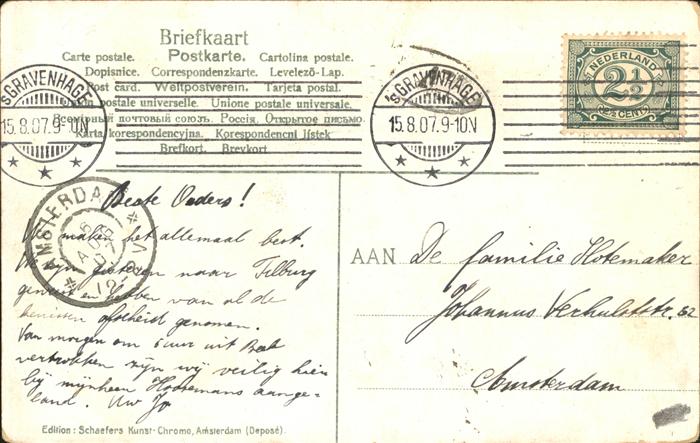 Briefkaart
Carte postale. Postkarte. Cartolina postale.
Dopisnice. Correspondenzkarte. Levelező-Lap.
Post card. Weltpostverein. Tarjeta postal.
Union postale universelle. Unione postale universale.
Всемірный почтовый союзъ. Россия. Открытое письмо.
Karta korespondencyjna. Korespondenčni lístek
Brefkort. Brevkort.
'sGRAVENHAGE
15.8.07.9-10N
'sGRAVENHAGE
15.8.07.9-10N
NEDERLAND
2½
CENT
AMSTERDAM
12
Beste Ouders!
We maken het allemaal best.
Wij zijn gisteren naar Tilburg
geweest en hebben van al de
kenissen afscheid genomen.
Van morgen om 5 uur uit
vertrokken zijn wij veilig hier
bij mynheer Hoosemans aange-
land. Uw Jo
AAN De familie Hotemaker
Johannus Verhulststr. 32
Amsterdam
Edition: Schaefers Kunst-Chromo, Amsterdam (Deposé).